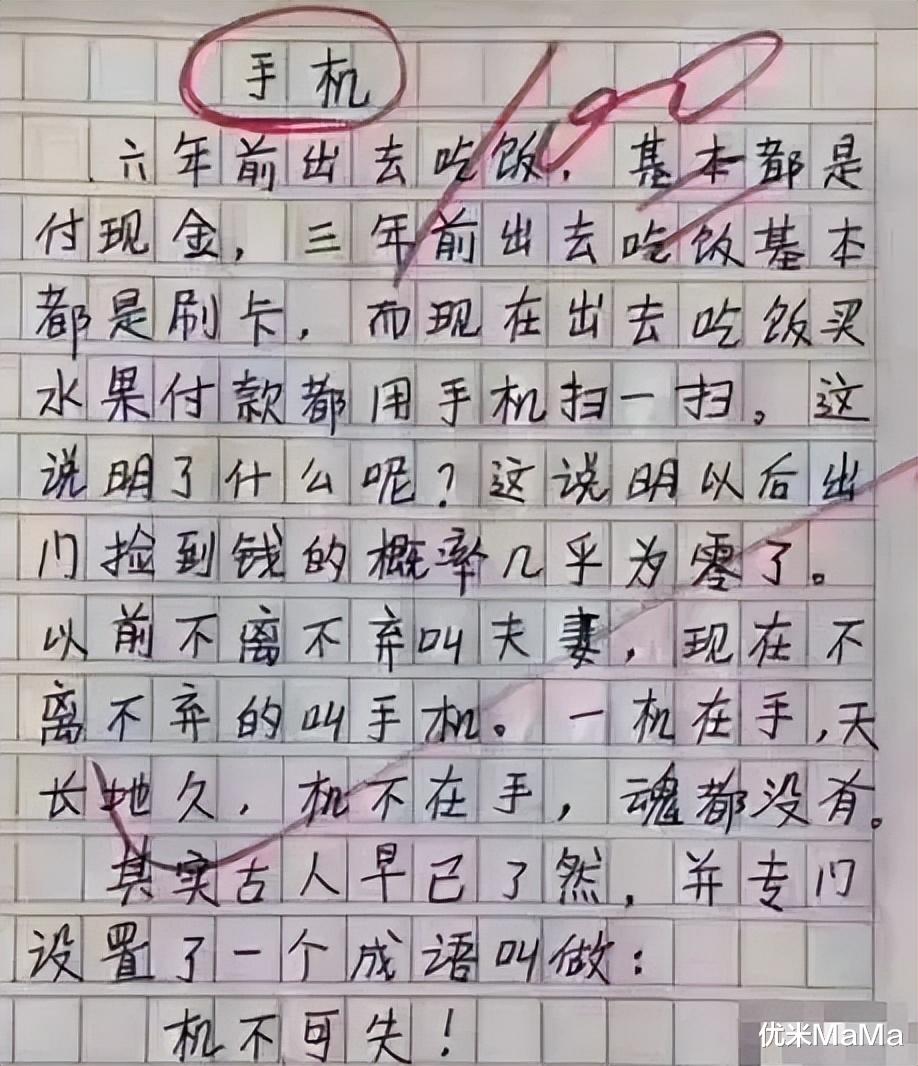 手机
100
六年前出去吃饭，基本都是
付现金，三年前出去吃饭基本
都是刷卡，而现在出去吃饭买
水果付款都用手机扫一扫。这
说明了什么呢？这说明以后出
门捡到钱的概率几乎为零了。
以前不离不弃叫夫妻，现在不
离不弃的叫手机。一机在手，天
长地久，机不在手，魂都没有。
其实古人早已了然，并专门
设置了一个成语叫做：
机不可失！
优米MaMa